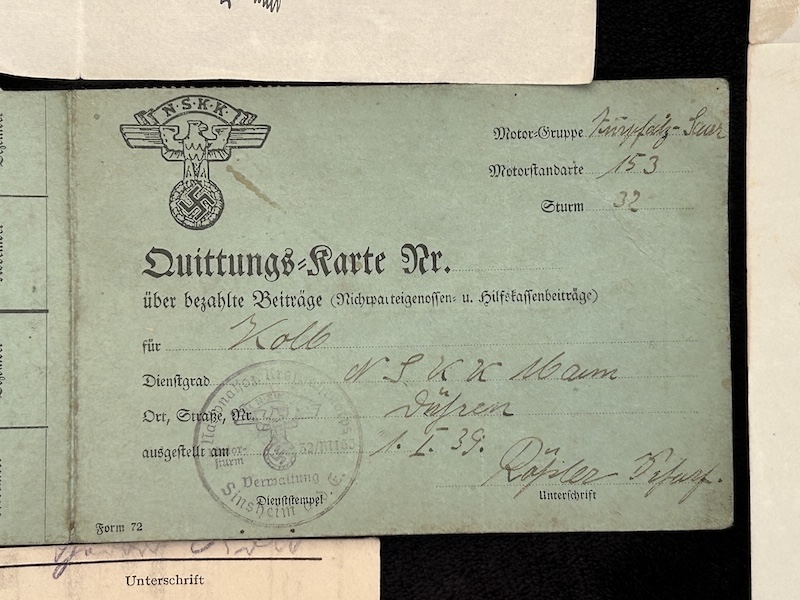 N·S·K·K
Motor-Gruppe Kurpfalz-Saar
Motorstandarte 153
Sturm 32
Quittungs-Karte Nr.
über bezahlte Beiträge (Nichtparteigenossen- u. Hilfskassenbeiträge)
für Kolb
Dienstgrad N S K K Mann
Ort, Straße, Nr. Dühren
ausgestellt am 1. I. 39.
Verwaltung
Sinsheim
Dienststempel
Unterschrift
Form 72
Unterschrift